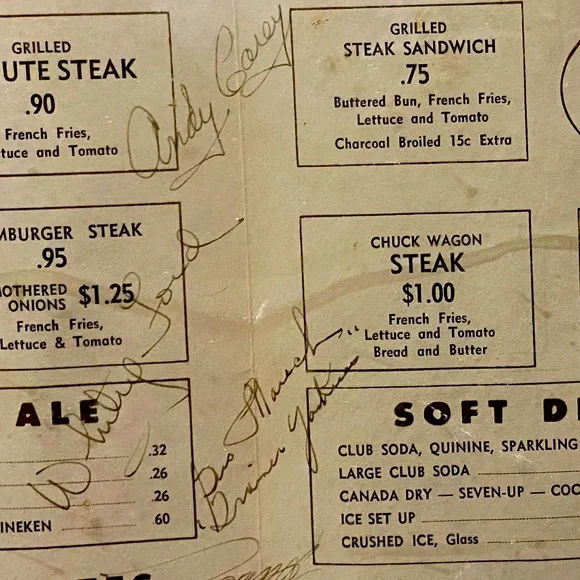 GRILLED
UTE STEAK
.90
French Fries,
tuce and Tomato
Andy Carey
GRILLED
STEAK SANDWICH
.75
Buttered Bun, French Fries,
Lettuce and Tomato
Charcoal Broiled 15c Extra
MBURGER STEAK
.95
OTHERED
ONIONS $1.25
French Fries,
ettuce & Tomato
Whitey Ford
CHUCK WAGON
STEAK
$1.00
French Fries,
Lettuce and Tomato
Bread and Butter
ALE
.32
.26
.26
INEKEN .60
Gus Mauch
Trainer Yankees
SOFT D
CLUB SODA, QUININE, SPARKLING
LARGE CLUB SODA
CANADA DRY — SEVEN-UP — COC
ICE SET UP
CRUSHED ICE, Glass